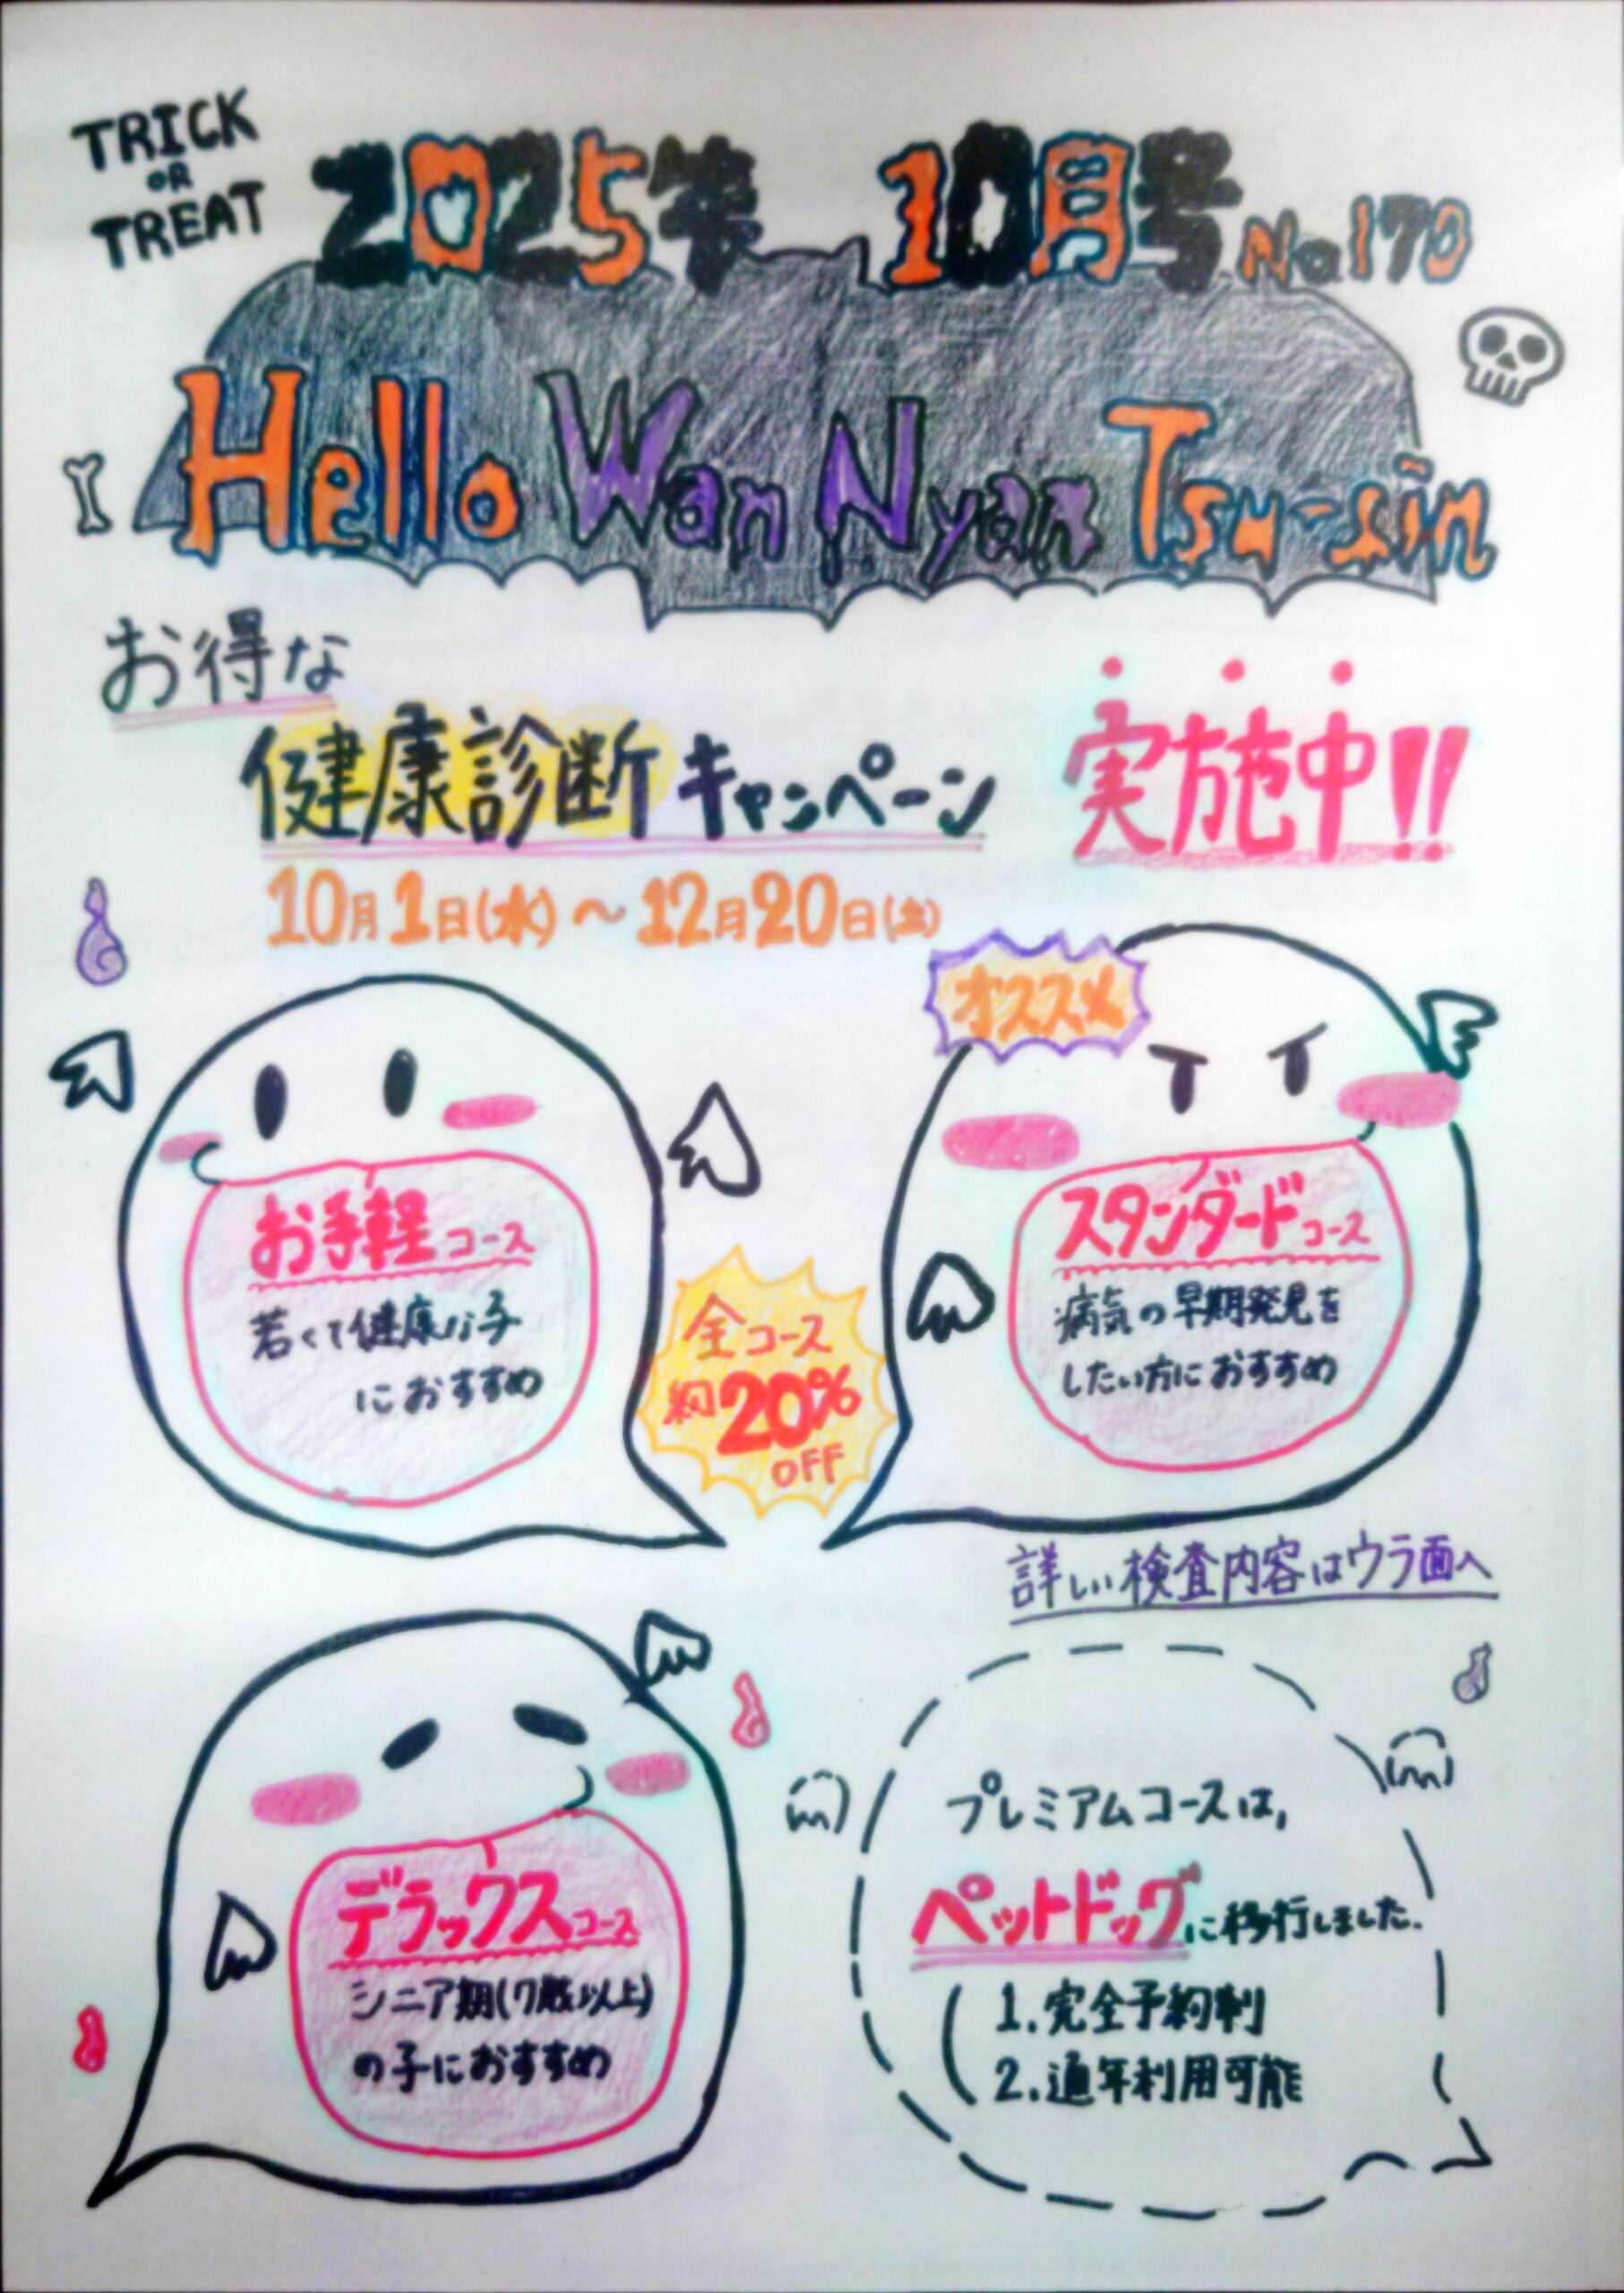 TRICK
OR
TREAT
2025年 10月号 No170
Hello Wan Nyan Tsu-sin
お得な
健康診断キャンペーン 実施中!!
10月1日(水)～12月20日(土)
オススメ
お手軽コース
若くて健康な子
におすすめ
スタンダードコース
病気の早期発見を
したい方におすすめ
全コース
約20%
OFF
詳しい検査内容はウラ面へ
デラックスコース
シニア期(7歳以上)
の子におすすめ
プレミアムコースは,
ペットドッグに移行しました.
1.完全予約制
2.通年利用可能